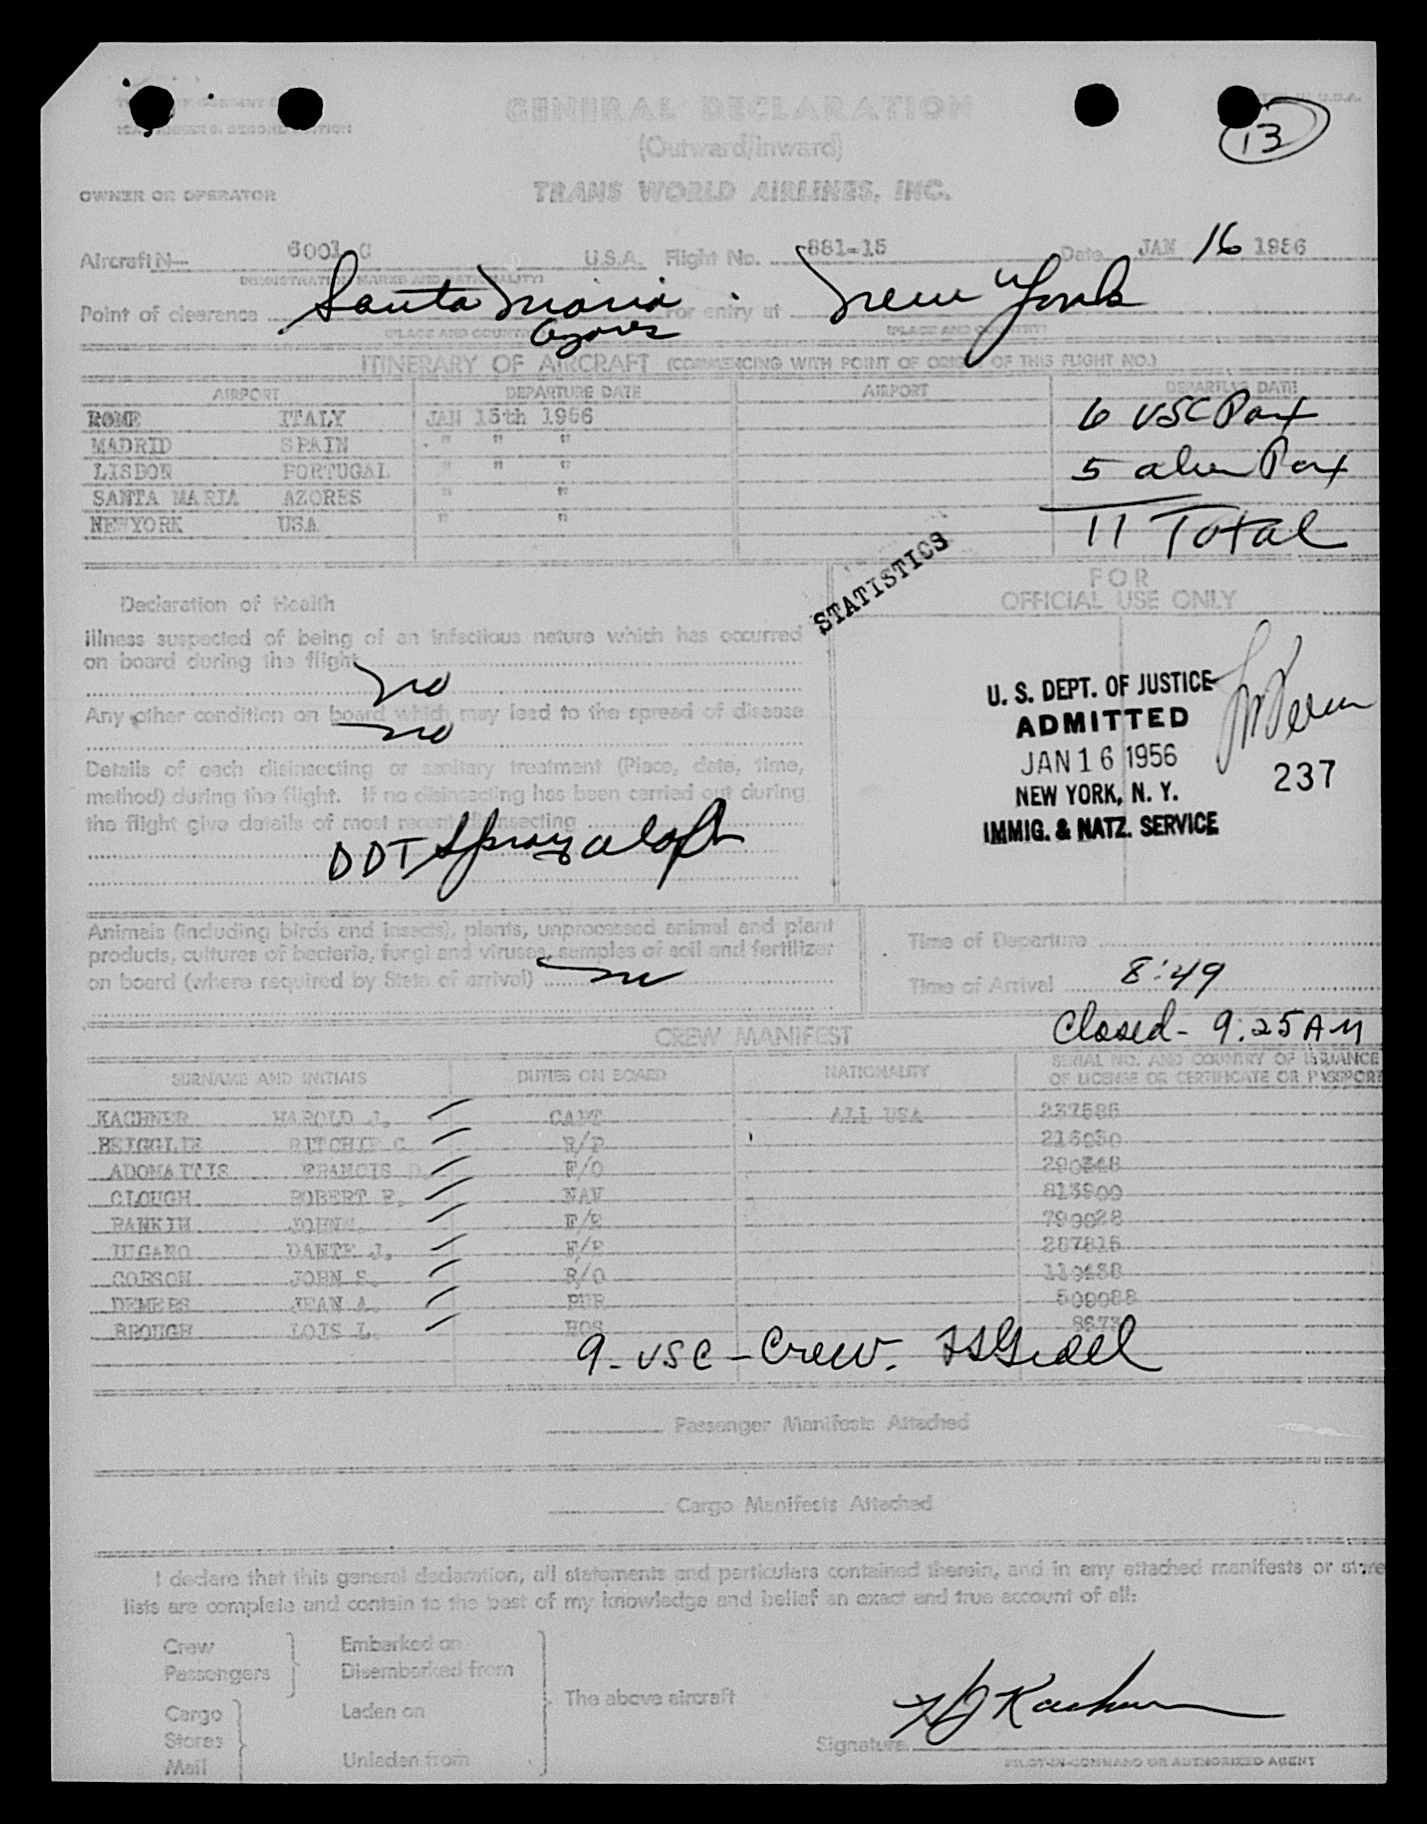 GENERAL DECLARATION
(Outward/Inward)
13
OWNER OR OPERATOR TRANS WORLD AIRLINES, INC.
Aircraft N— 6001 C U.S.A. Flight No. 881-15 Date JAN 16 1956
(REGISTRATION MARKS AND NATIONALITY)
Point of clearance Santa Maria For entry at New York
Azores
(PLACE AND COUNTRY) (PLACE AND COUNTRY)
ITINERARY OF AIRCRAFT (COMMENCING WITH POINT OF ORIGIN OF THIS FLIGHT NO.)
AIRPORT DEPARTURE DATE AIRPORT DEPARTURE DATE
ROME ITALY JAN 15th 1956 6 USC Pax
MADRID SPAIN " " "
LISBON PORTUGAL " " " 5 alien Pax
SANTA MARIA AZORES " "
NEWYORK USA " " 11 Total
STATISTICS
FOR
OFFICIAL USE ONLY
Declaration of Health
Illness suspected of being of an infectious nature which has occurred
on board during the flight
no
Any other condition on board which may lead to the spread of disease
no
Details of each disinsecting or sanitary treatment (Place, date, time,
method) during the flight. If no disinsecting has been carried out during
the flight give details of most recent disinsecting
DDT Spray aloft
U. S. DEPT. OF JUSTICE
ADMITTED
JAN 16 1956
237
NEW YORK, N. Y.
IMMIG. & NATZ. SERVICE
Animals (including birds and insects), plants, unprocessed animal and plant
products, cultures of bacteria, fungi and viruses, samples of soil and fertilizer
on board (where required by State of arrival) no
Time of Departure
Time of Arrival 8:49
Closed - 9:25 AM
CREW MANIFEST
SURNAME AND INITIALS DUTIES ON BOARD NATIONALITY SERIAL NO. AND COUNTRY OF ISSUANCE
OF LICENSE OR CERTIFICATE OR PASSPORT
KACHNER HAROLD J. CAPT ALL USA 237585
BEIGGLIE RITCHIE C R/P
ADOMAITIS FRANCIS D. F/O
CLOUGH ROBERT E. NAV
RANKIN JOHN F/E
LUGANO DANTE J. F/E 287815
COBSON JOHN S. R/O
DEMERS JEAN A. PUR 509088
BROUGH LOIS L. HOS
9 - USC - Crew.
Passenger Manifests Attached
Cargo Manifests Attached
I declare that this general declaration, all statements and particulars contained therein, and in any attached manifests or store
lists are complete and contain to the best of my knowledge and belief an exact and true account of all:
Crew Embarked on
Passengers Disembarked from
The above aircraft
Cargo Laden on
Stores
Mail Unladen from
Signature HJ Kachner
PILOT-IN-COMMAND OR AUTHORIZED AGENT